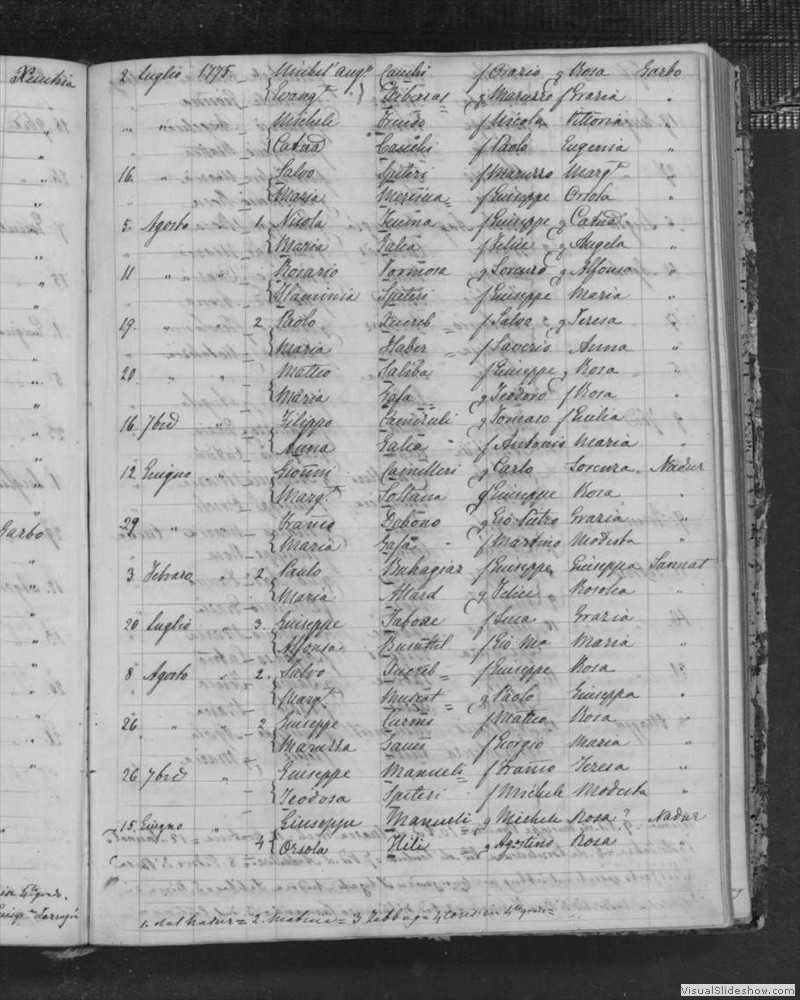 Xeuchia
2 Luglio 1775 Michel' Ang.º Cauchi f Orazio g Rosa Garbo
Evang.ta g Maruzzo f Grazia "
" " Michele f Nicola Vittoria "
Catnd Cauchi f Paolo Eugenia "
16. " " Salvo Spiteri f Maruzzo Marg.ta "
Maria f Giuseppe Orsola "
5. Agosto 1. Nicola f Giuseppe g Catnd "
Maria Galea f Felice g Angela "
11 " " Rosario Formosa g Lorenzo g Alfonsa "
Flaminia Spiteri f Giuseppe Maria "
19. " " 2 Paolo Xuereb f Salvo g Teresa "
Maria Haber f Saverio Anna "
20 " " Matteo Saliba f Giuseppe g Rosa "
Maria g Teodoro f Rosa "
16. 7bre " Filippo g Tomaso f Giulia "
Anna Galea f Antonio Maria "
12 Giugno " Gionni Camilleri g Carlo Lorenza Nadur
Marg.ta Soltana g Giuseppe Rosa "
29 " " Franco Debono g Gio Pietro Grazia "
Maria f Martino Modesta "
3. Febraro " 2. Paulo Buhagiar f Giuseppe Giuseppa Sannat
Maria Attard g Felice Rosolea "
20 Luglio " 3. Giuseppe Tabone f Luca Grazia "
Alfonsa Busuttil f Gio Ma Maria "
8 Agosto " 2. Salvo Xuereb f Giuseppe Rosa "
Marg.ta Muscat g Paolo Giuseppa "
26. " 2 Giuseppe Curmi f Matteo Rosa "
Maruzza f Giorgio Maria "
26 7bre " Giuseppe Manueli f Franco Teresa "
Teodosa Spiteri f Michele Modesta "
15. Giugno " Giuseppe Manueli g Michele Rosa? Nadur
4 Orsola g Agostino Rosa "
Garbo
1. dal Nadur = 2. = 3. Zebbug = 4 Cons: in 4to grado =
in 4to grado.
VisualSlideshow.com